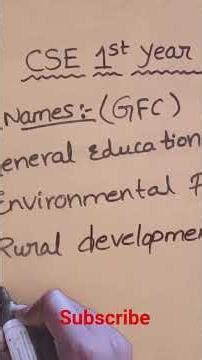 CSE 1st year
Names:- (GFC)
eneral Education
Environmental
Rural developme
Subscribe